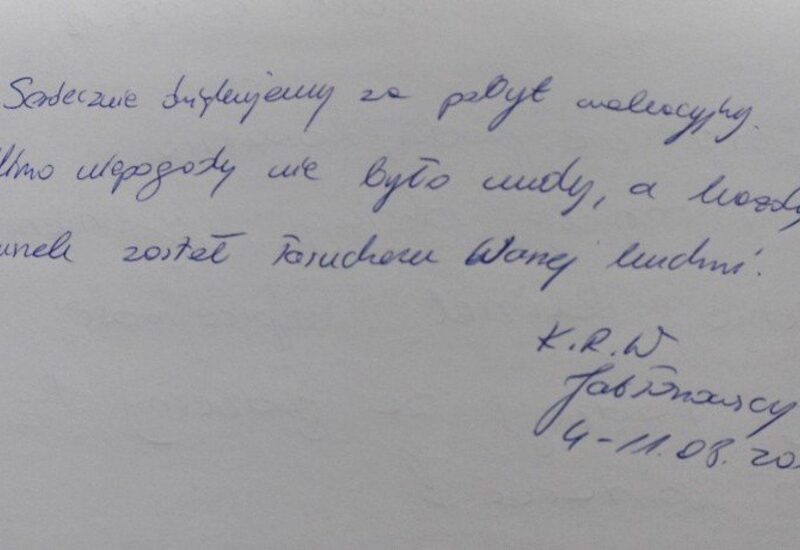 Serdecznie dziękujemy za pobyt wakacyjny.
Mimo niepogody nie było nudy, a każdy
został łasuchem Waszej kuchni.
K.R.W
Jabłonowscy
4-11.08.20